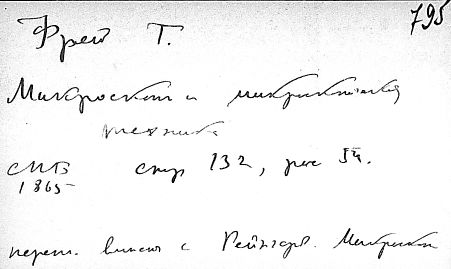 795
Фрей Г.
Микроскоп и микроскопическая
техника
СПБ стр 132, рис 54.
1865
переп. вместе с Рейнгард. Микроскоп